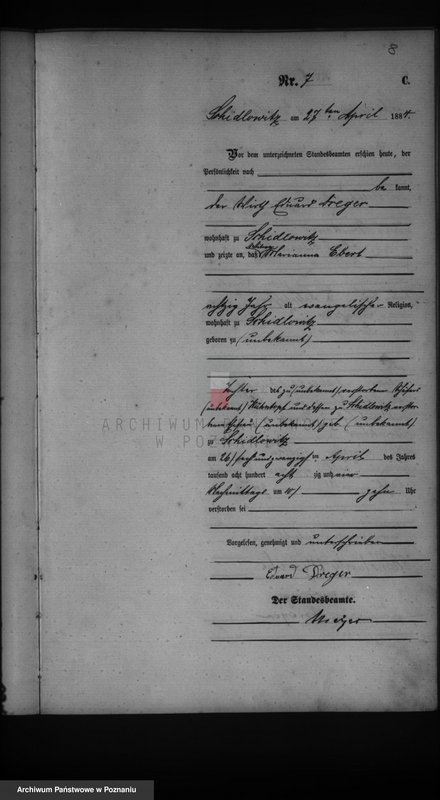 8
Nr. 7 C.
Schidlowitz am 27ten April 1884.
Vor dem unterzeichneten Standesbeamten erschien heute, der
Persönlichkeit nach
be kannt,
der Wirth Eduard Dreger
wohnhaft zu Schidlowitz
und zeigte an, daß Marianna Ebert
achtzig Jahr alt evangelischer Religion,
wohnhaft zu Schidlowitz
geboren zu (unbekannt)
Tochter des zu (unbekannt) verstorbenen
(unbekannt) und dessen zu Schidlowitz verstor-
benen (unbekannt) geb (unbekannt)
zu Schidlowitz
am 26) sechsundzwanzigsten April des Jahres
tausend acht hundert acht zig und vier
Nachmittags um 10) zehn Uhr
verstorben sei
Vorgelesen, genehmigt und unterschrieben
Eduard Dreger
Der Standesbeamte.
ARCHIWUM
W PO
Archiwum Państwowe w Poznaniu